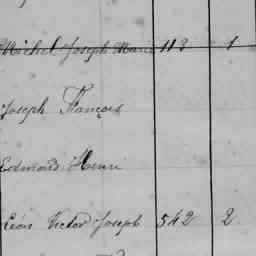 Michel Joseph Marie 113 1
Joseph François
Edmond Henri
Léon Victor Joseph 542 2